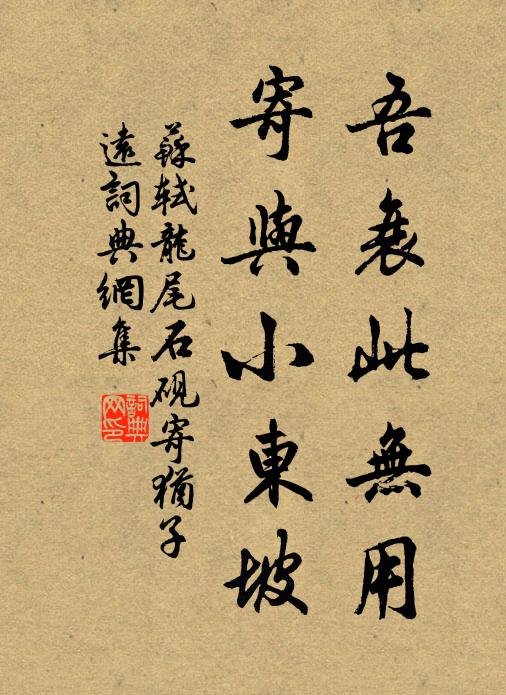 吾衰此無用
寄與小東坡
蘇軾龍尾石硯寄猶子
遠詞典網集
詞典
网印